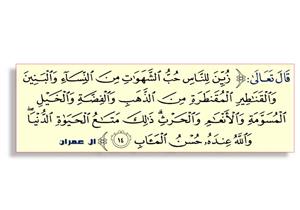 قَالَ تَعَالَىٰ: ﴿ زُيِّنَ لِلنَّاسِ حُبُّ الشَّهَوَاتِ مِنَ النِّسَآءِ وَالْبَنِينَ
وَالْقَنَاطِيرِ الْمُقَنطَرَةِ مِنَ الذَّهَبِ وَالْفِضَّةِ وَالْخَيْلِ
الْمُسَوَّمَةِ وَالْأَنْعَامِ وَالْحَرْثِ ۗ ذَٰلِكَ مَتَاعُ الْحَيَوٰةِ الدُّنْيَا ۖ
وَاللَّهُ عِندَهُۥ حُسْنُ الْمَـَٔابِ ١٤ ﴾ ال عمران